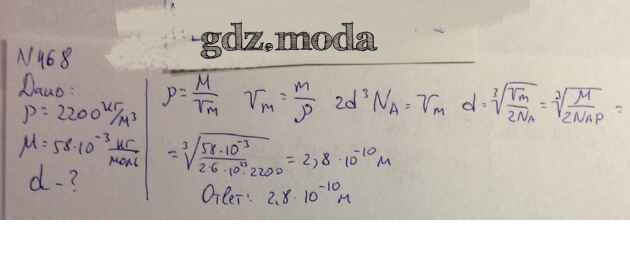 gdz.moda
N 468
Дано:
ρ = 2200 кг/м³
M = 58·10⁻³ кг/моль
d - ?
ρ = M/Vm Vm = m/ρ 2d³NA = Vm d = ∛(Vm/2NA) = ∛(M/2NAρ) =
= ∛(58·10⁻³/2·6·10²³·2200) = 2,8·10⁻¹⁰ м
Ответ: 2,8·10⁻¹⁰ м